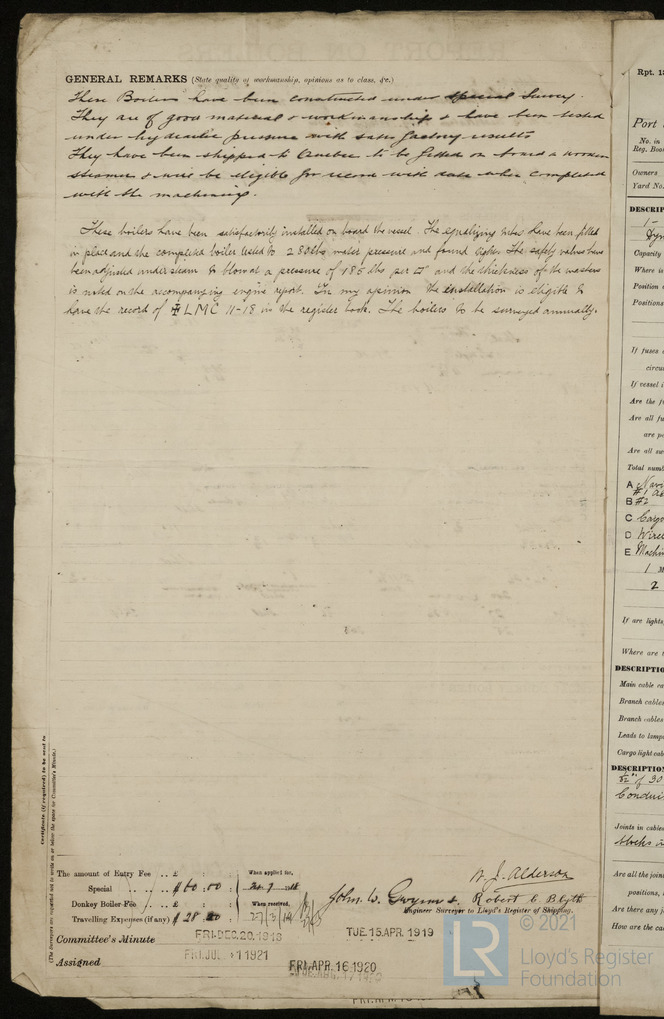 GENERAL REMARKS (State quality of workmanship, opinions as to class, &c.)
These Boilers have been constructed under special Survey.
They are of good material & workmanship & have been tested
under hydraulic pressure with satisfactory results
They have been shipped to Quebec to be fitted on board a wooden
steamer & will be eligible for record with date when completed
with the machinery.
These boilers have been satisfactorily installed on board the vessel. The equalizing tubes have been fitted
in place and the completed boiler tested to 280 lbs water pressure and found tight. The safety valves have
been adjusted under steam to blow at a pressure of 185 lbs per □" and the thickness of the washers
is noted on the accompanying engine report. In my opinion the installation is eligible to
have the record of ✠ LMC 11-18 in the register book. The boilers to be surveyed annually.
Certificate (if required) to be sent to
(The Surveyors are requested not to write on or below the space for Committee's Minute.)
The amount of Entry Fee .. £ : : When applied for,
Special .. .. £ $60.00 :
Donkey Boiler Fee .. .. £ : : When received,
Travelling Expenses (if any) £ $28
W. J. Alderson
John W. Gwynne. Robert C. Blyth
Engineer Surveyor to Lloyd's Register of Shipping.
Committee's Minute FRI. DEC. 20. 1918 TUE. 15. APR. 1919
Assigned FRI. JUL 1921 FRI. APR. 16 1920
© 2021
LR Lloyd's Register
Foundation
Rpt. 13
Port
No. in
Reg. Book
Owners
Yard No.
DESCRIP
Capacity
Where is
Position
Positions
If fuses
circu
If vessel i
Are the f
Are all fu
are po
Are all sw
Total numb
A Navi
B #2
C Cargo
D Wirel
E Machin
1
2
If are lights
Where are
DESCRIPTIO
Main cable ca
Branch cables
Branch cables
Leads to lamps
Cargo light cab
DESCRIPTION
Conduit
Joints in cables
Are all the join
positions,
Are there any j
How are the ca